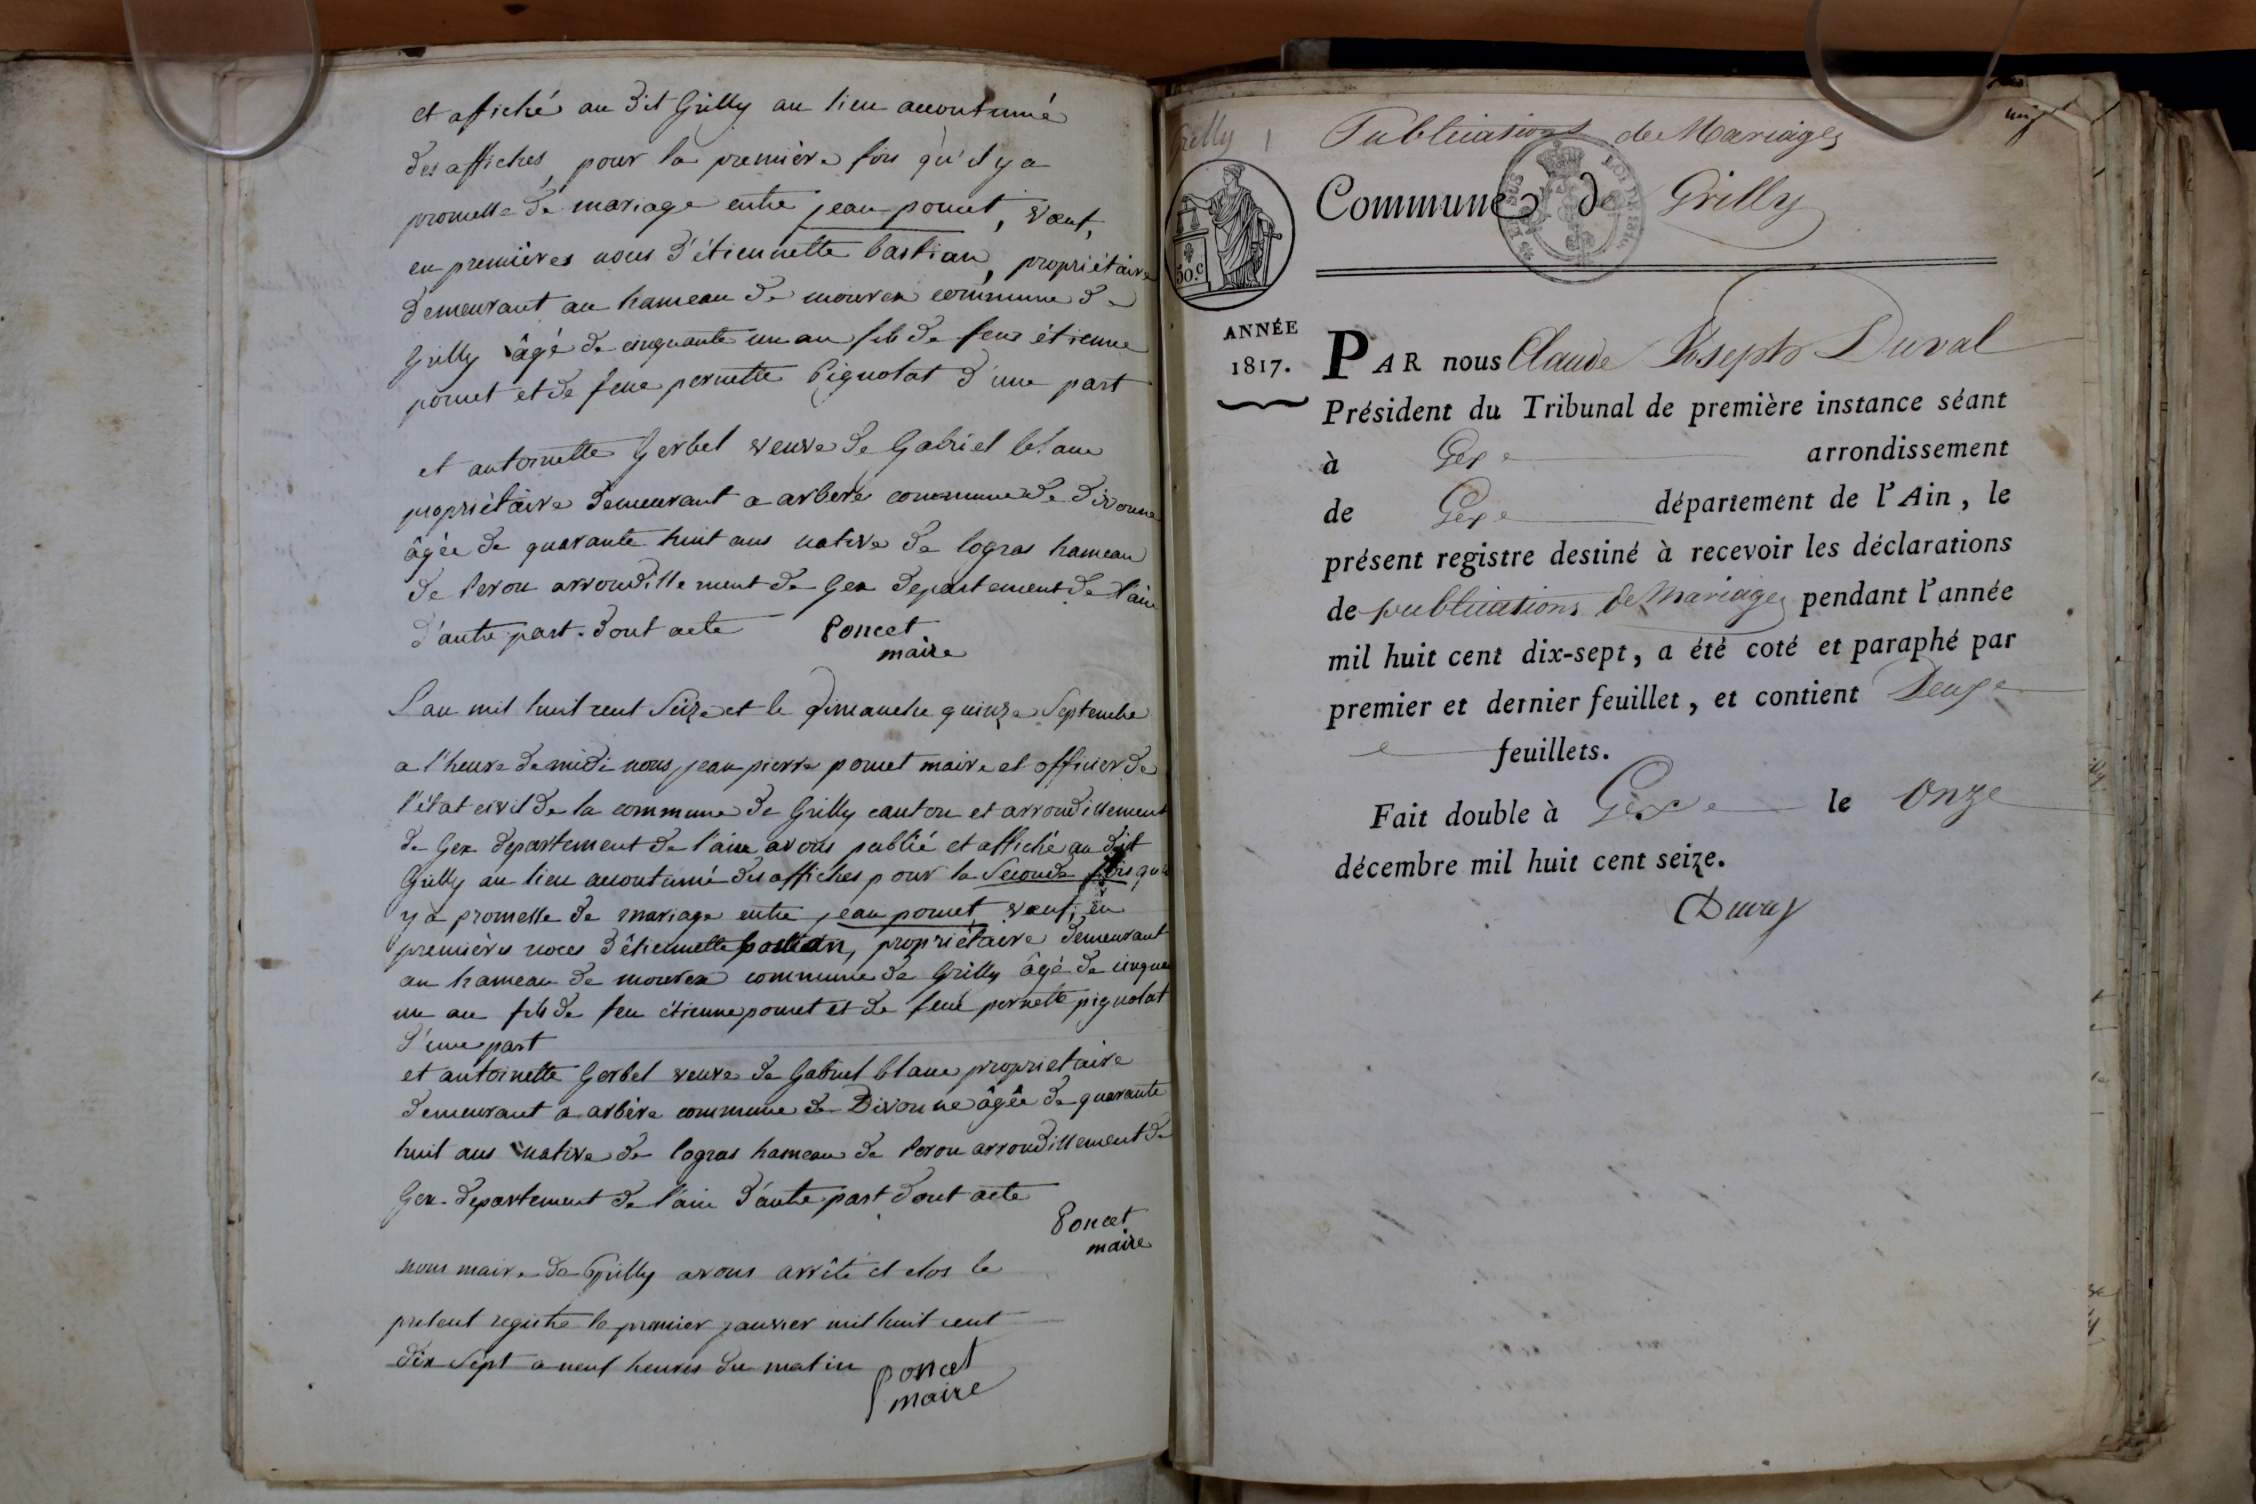 et affiché au dit Grilly au lieu accoutumé
des affiches, pour la première fois qu'il y a
promesse de mariage entre jean poncet, veuf,
en premières noces d'étiennette bastian, propriétaire
demeurant au hameau de mourex commune de
Grilly âgé de cinquante un an fils de feu étienne
poncet et de feue pernette pignolat d'une part
et antoinette Gerbel veuve de Gabriel blanc
propriétaire demeurant a arbere commune de divonne
âgée de quarante huit ans native de logras hameau
de peron arrondissement de Gex departement de l'ain
d'autre part. dont acte Poncet
maire
L'an mil huit cent Seize et le dimanche quinze Septembre
a l'heure de midi nous jean pierre poncet maire et officier de
l'état civil de la commune de Grilly canton et arrondissement
de Gex departement de l'ain avons publié et affiché au dit
Grilly au lieu accoutumé des affiches pour la Seconde fois qu'il
y a promesse de mariage entre jean poncet veuf, en
premières noces d'étiennette bastian, propriétaire demeurant
au hameau de mourex commune de Grilly âgé de cinquante
un an fils de feu étienne poncet et de feue pernette pignolat
d'une part
et antoinette Gerbel veuve de Gabriel blanc propriétaire
demeurant a arbère commune de Divonne âgée de quarante
huit ans native de logras hameau de peron arrondissement de
Gex departement de l'ain d'autre part dont acte
Poncet
maire
nous maire de Grilly avons arrêté et clos le
présent registre le premier janvier mil huit cent
dix Sept a neuf heures du matin Poncet
maire
Grilly
Publications de Mariages
Commune de Grilly
50.c
ANNÉE
1817.
PAR nous Claude Joseph Duval
Président du Tribunal de première instance séant
à Gex arrondissement
de Gex département de l'Ain, le
présent registre destiné à recevoir les déclarations
de publications de Mariages pendant l'année
mil huit cent dix-sept, a été coté et paraphé par
premier et dernier feuillet, et contient Deux
feuillets.
Fait double à Gex le Onze
décembre mil huit cent seize.
Duval